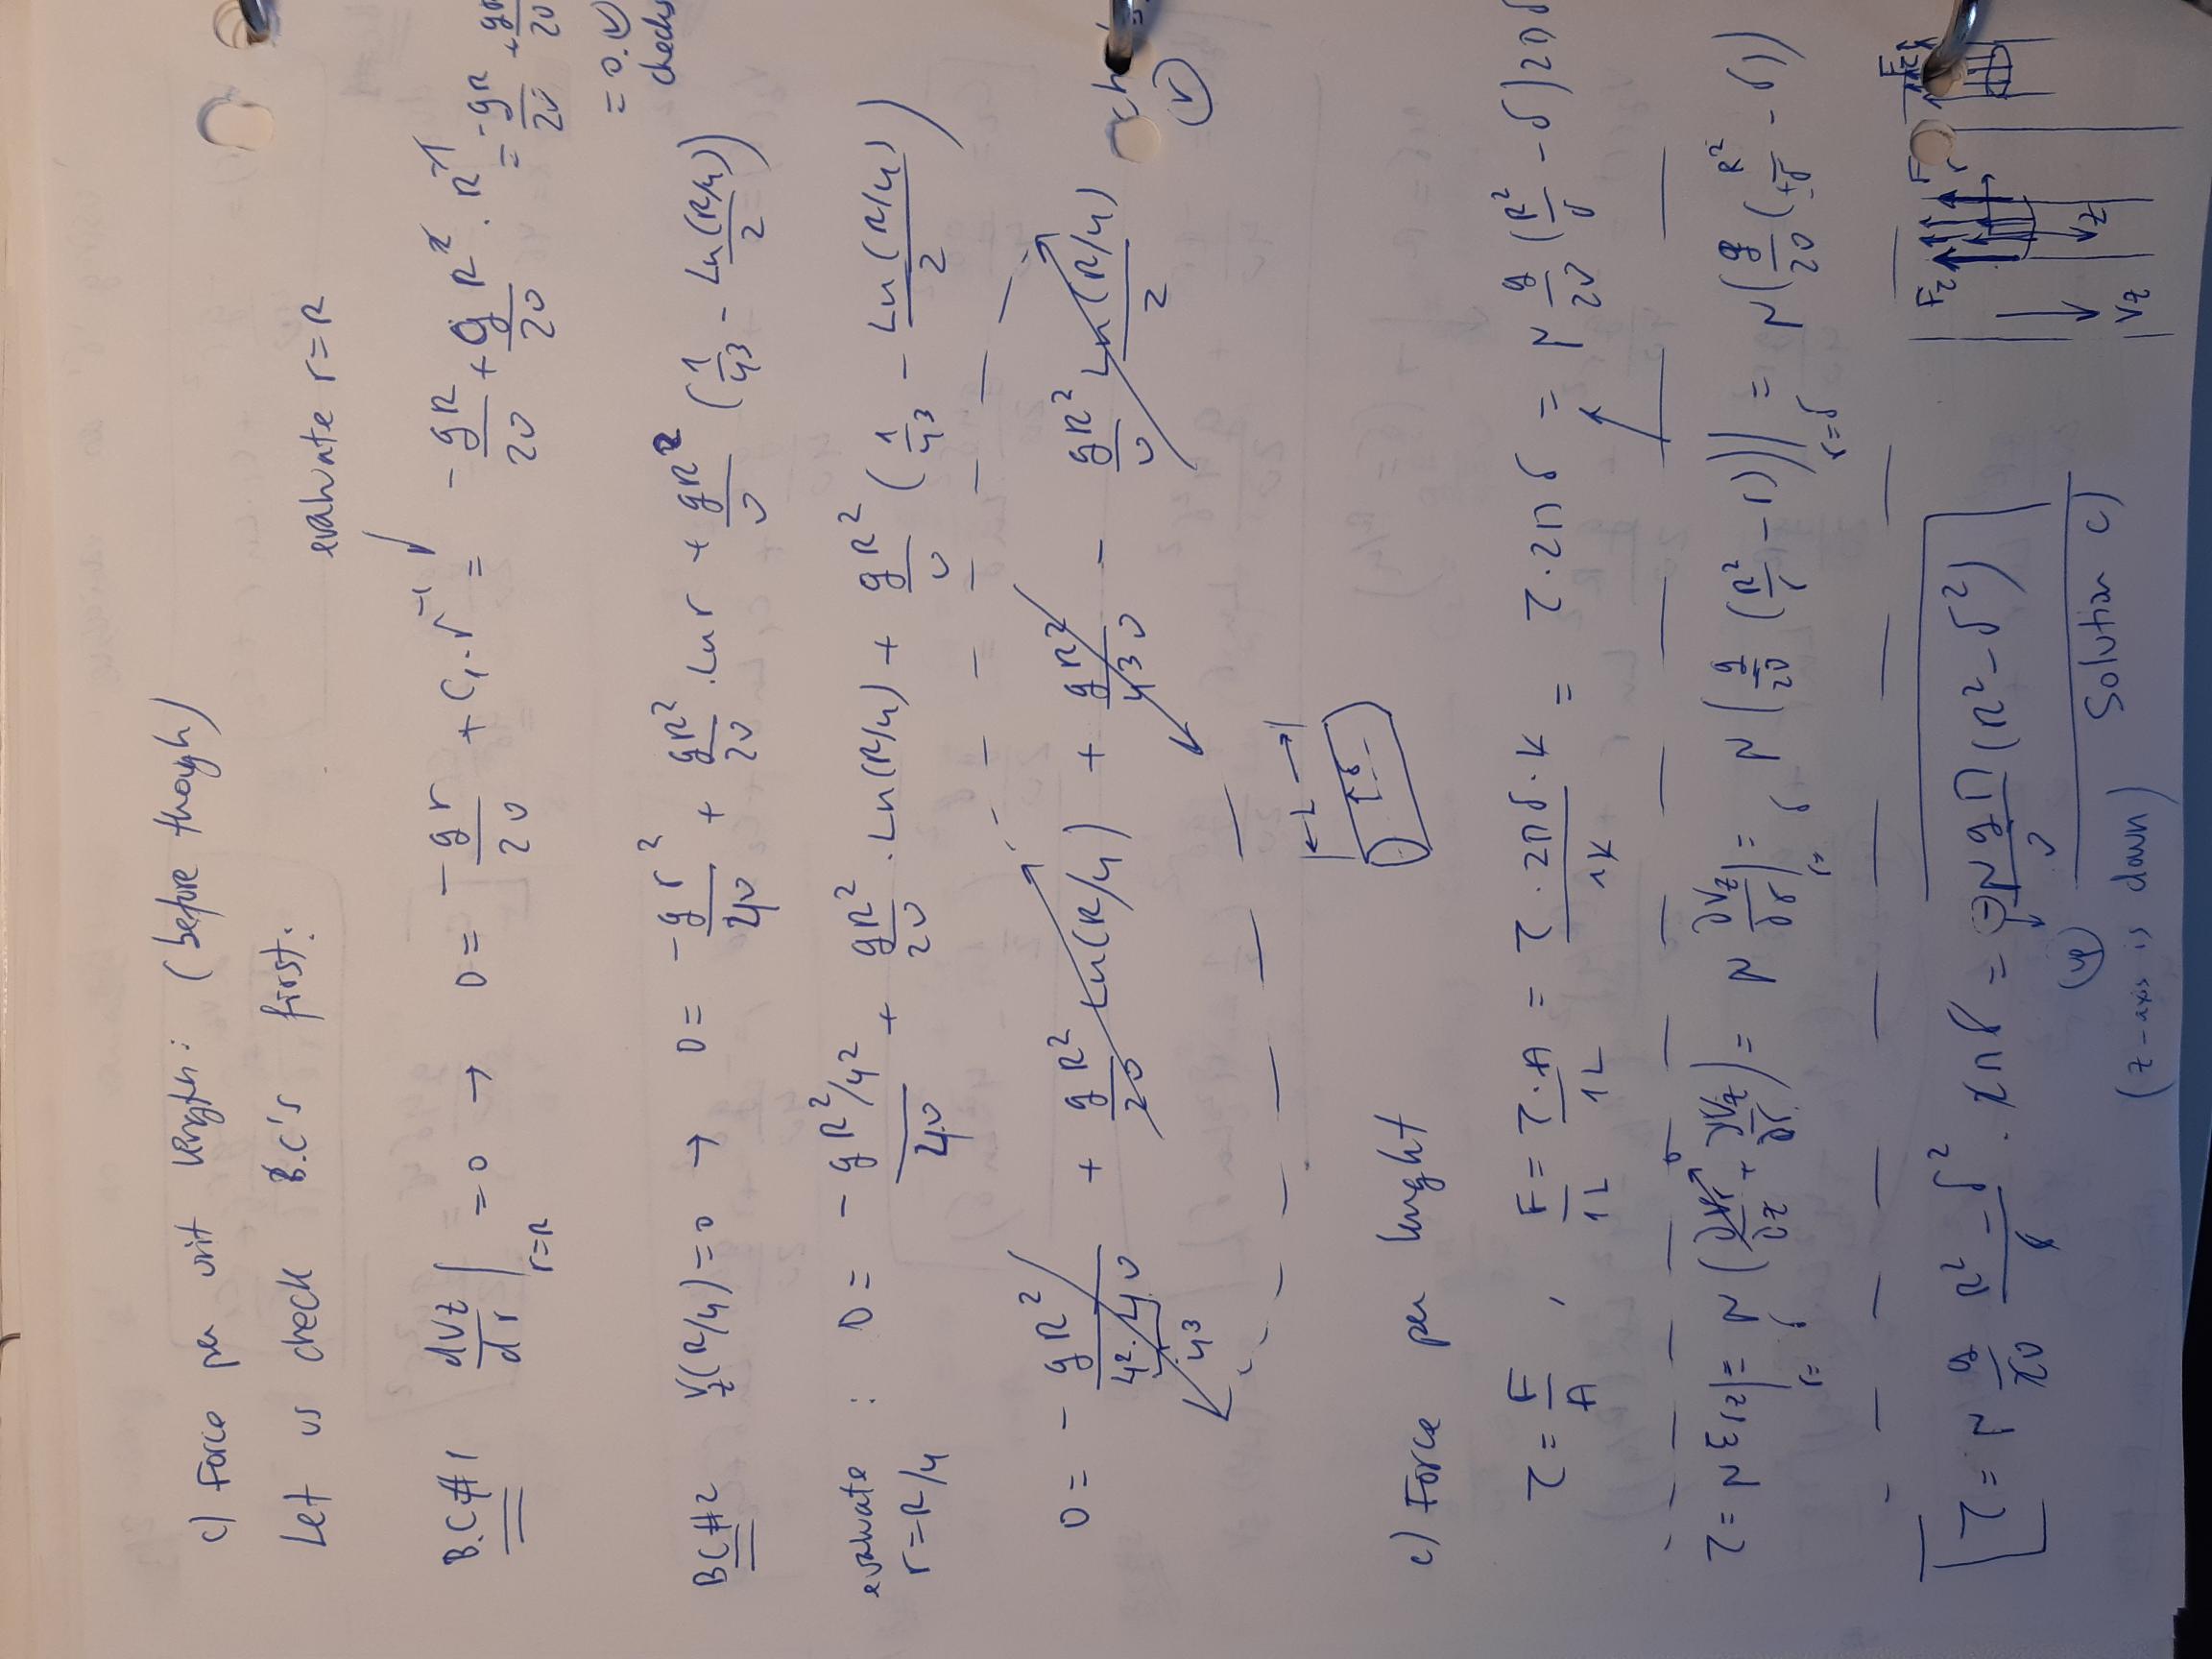 c) Force per unit length: (before though)
Let us check B.C's first:
evaluate r=R
B.C#1 dVz/dr|r=R = 0 → 0 = -gr/2υ + C₁·r⁻¹ = -gR/2υ + g/2υ R²·R⁻¹ = -gR/2υ + gR/2υ
= 0. ✓
checks
BC#2 Vz(R/4)=0 → 0 = -gr²/4υ + gR²/2υ · Ln r + gR²/υ (1/4³ - Ln(R/4)/2)
evaluate r=R/4 : 0 = -gR²/4²/4υ + gR²/2υ · Ln(R/4) + gR²/υ (1/4³ - Ln(R/4)/2)
0 = - gR²/4²·4υ + gR²/2υ Ln(R/4) + gR²/4³υ - gR²/υ Ln(R/4)/2 ✓
4³
← L →
δ
c) Force per lenght
τ = F/A , F/1L = τ·A/1L = τ·2πδ·L/1L = τ·2πδ = μ g/2υ (R²/δ - δ) 2πδ
τ = μ εrz|r=δ = μ (∂Vr/∂z + ∂Vz/∂r) = μ ∂Vz/∂r|r=δ = μ (g/2υ (R²/r - r))|r=δ = μ (g/2υ (R²/δ - δ))
0
τ = μ g/2υ R²-δ²/δ · 2πδ = -μgπ/υ (R²-δ²)
up
(z-axis is down)
Solution c)
Fτ
F
r
z
Vz
Fτ